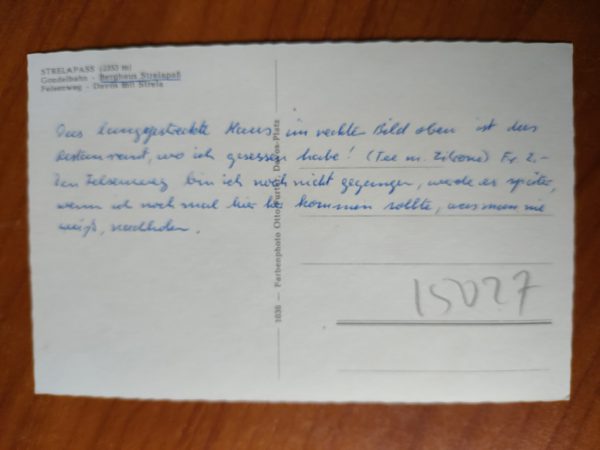 STRELAPASS (2353 m)
Gondelbahn - Berghaus Strelapaß
Felsenweg - Davos mit Strela
Das langgestreckte Haus im rechten Bild oben ist das
Restaurant, wo ich gesessen habe! (Tee m. Zitrone) Fr. 2,-
Den Felsenweg bin ich noch nicht gegangen, werde es später,
wenn ich noch mal hier her kommen sollte, was man nie
weiß, nachholen.
1038 — Farbenphoto Otto Furter, Davos-Platz
15027